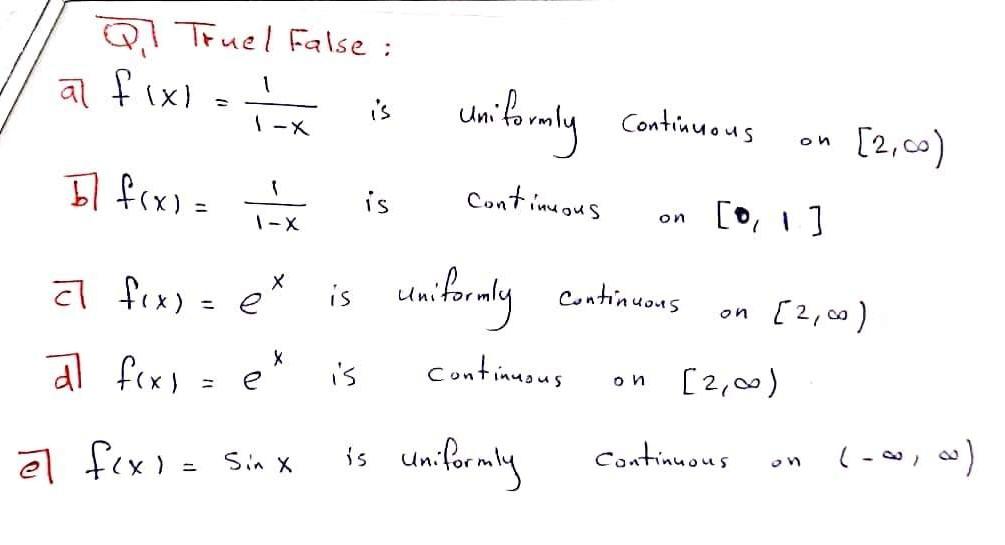 Q1 True/False:
a) f(x) = 1/(1-x) is uniformly continuous on [2,∞)
b) f(x) = 1/(1-x) is continuous on [0, 1]
c) f(x) = e^x is uniformly continuous on [2,∞)
d) f(x) = e^x is continuous on [2,∞)
e) f(x) = Sin x is uniformly continuous on (-∞, ∞)